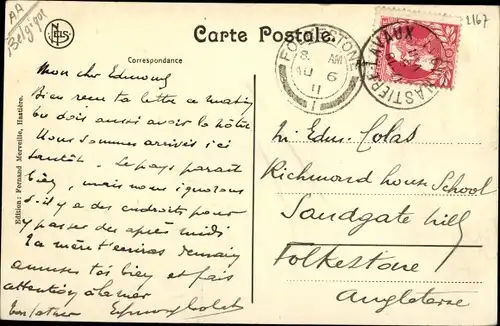 AA
Belgique
NELS
Carte Postale.
2167
Correspondance
FOLKESTONE
8. AM
AU 6
11
1
HASTIÈRE-LAVAUX
Edition: Fernand Merveille, Hastière.
Mon cher Edmond
Bien reçu ta lettre ce matin
tu dois aussi avoir la nôtre
Nous sommes arrivés ici
tantôt. Le pays parait
bien, mais nous ignorons
s'il y a des endroits pour
y passer des après midi
Ta mère t'écrira demain
amuses toi bien et fais
attention à la mer
ton père
Mr Edm. Colas
Richmond house School
Sandgate hill
Folkestone
Angleterre